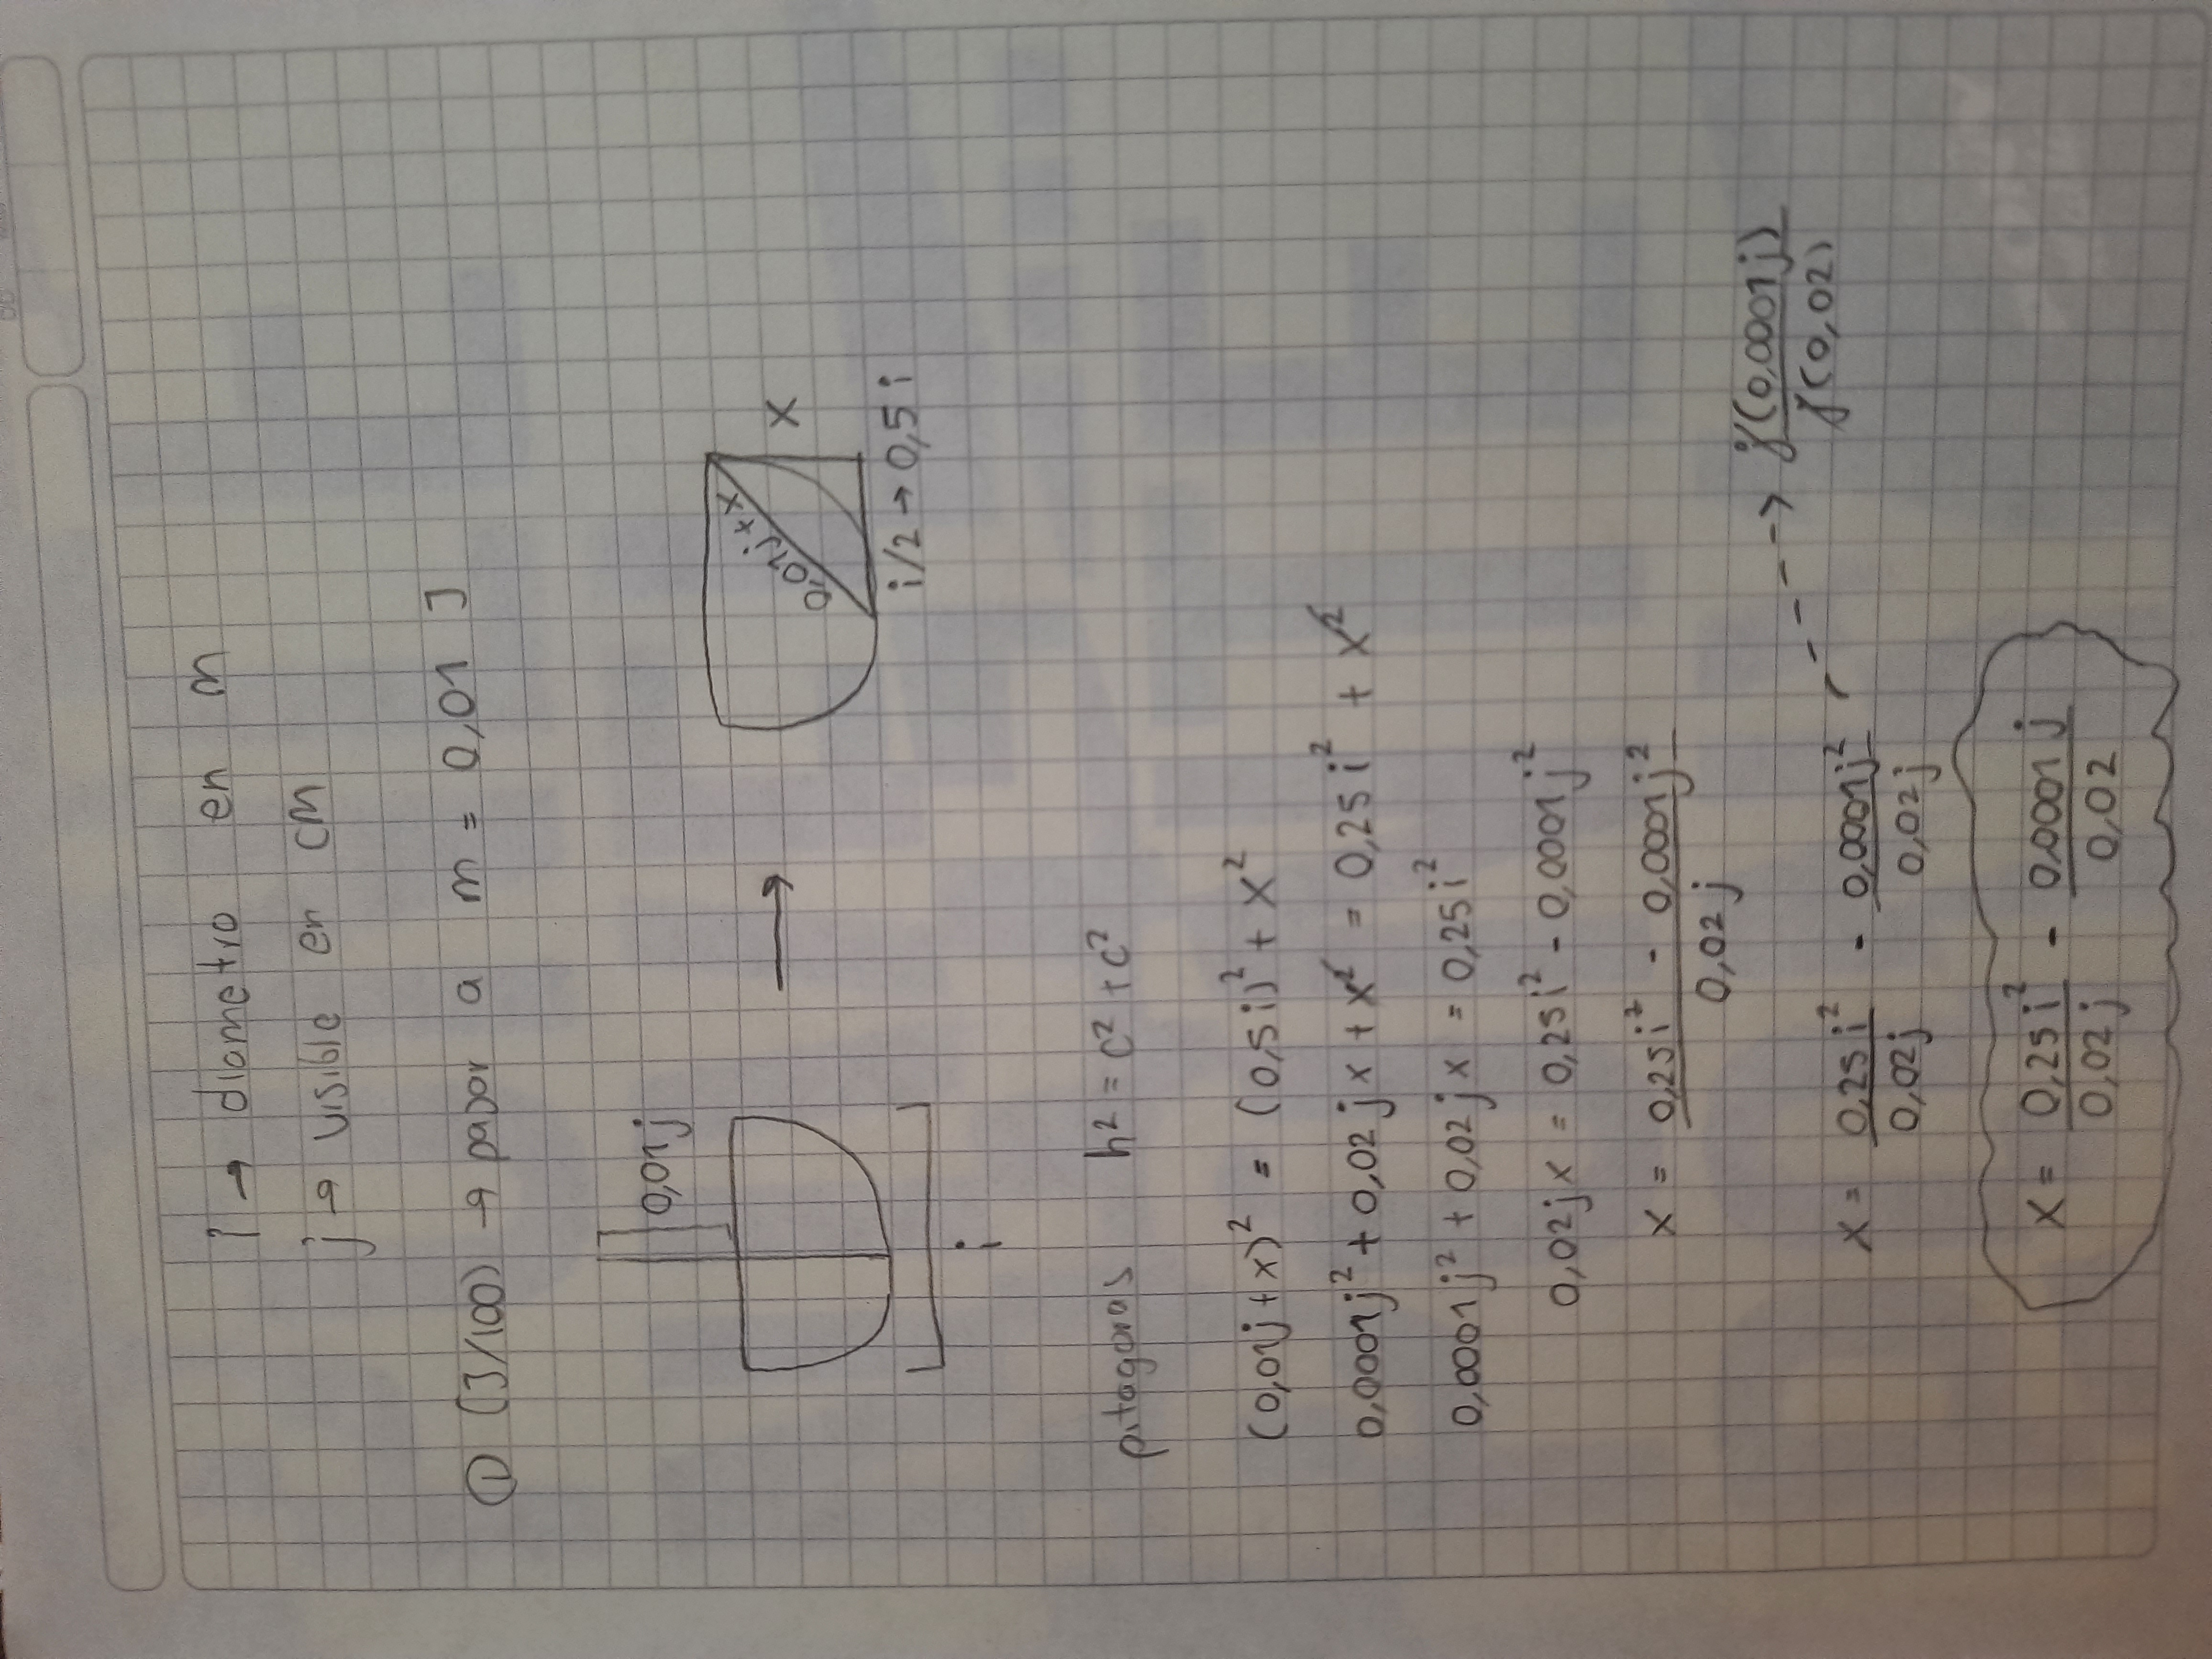 i → diametro en m
j → visible en cm
① (J/100) → pasar a m = 0,01 J
0,01j
i
0,01j + x
x
i/2 → 0,5 i
pitagoras h² = c² + c²
(0,01j + x)² = (0,5i)² + x²
0,0001j² + 0,02jx + x² = 0,25i² + x²
0,0001j² + 0,02jx = 0,25i²
0,02jx = 0,25i² - 0,0001j²
x = 0,25i² - 0,0001j² / 0,02j
x = 0,25i² / 0,02j - 0,0001j² / 0,02j --→ j(0,0001j) / j(0,02)
x = 0,25i² / 0,02j - 0,0001j / 0,02